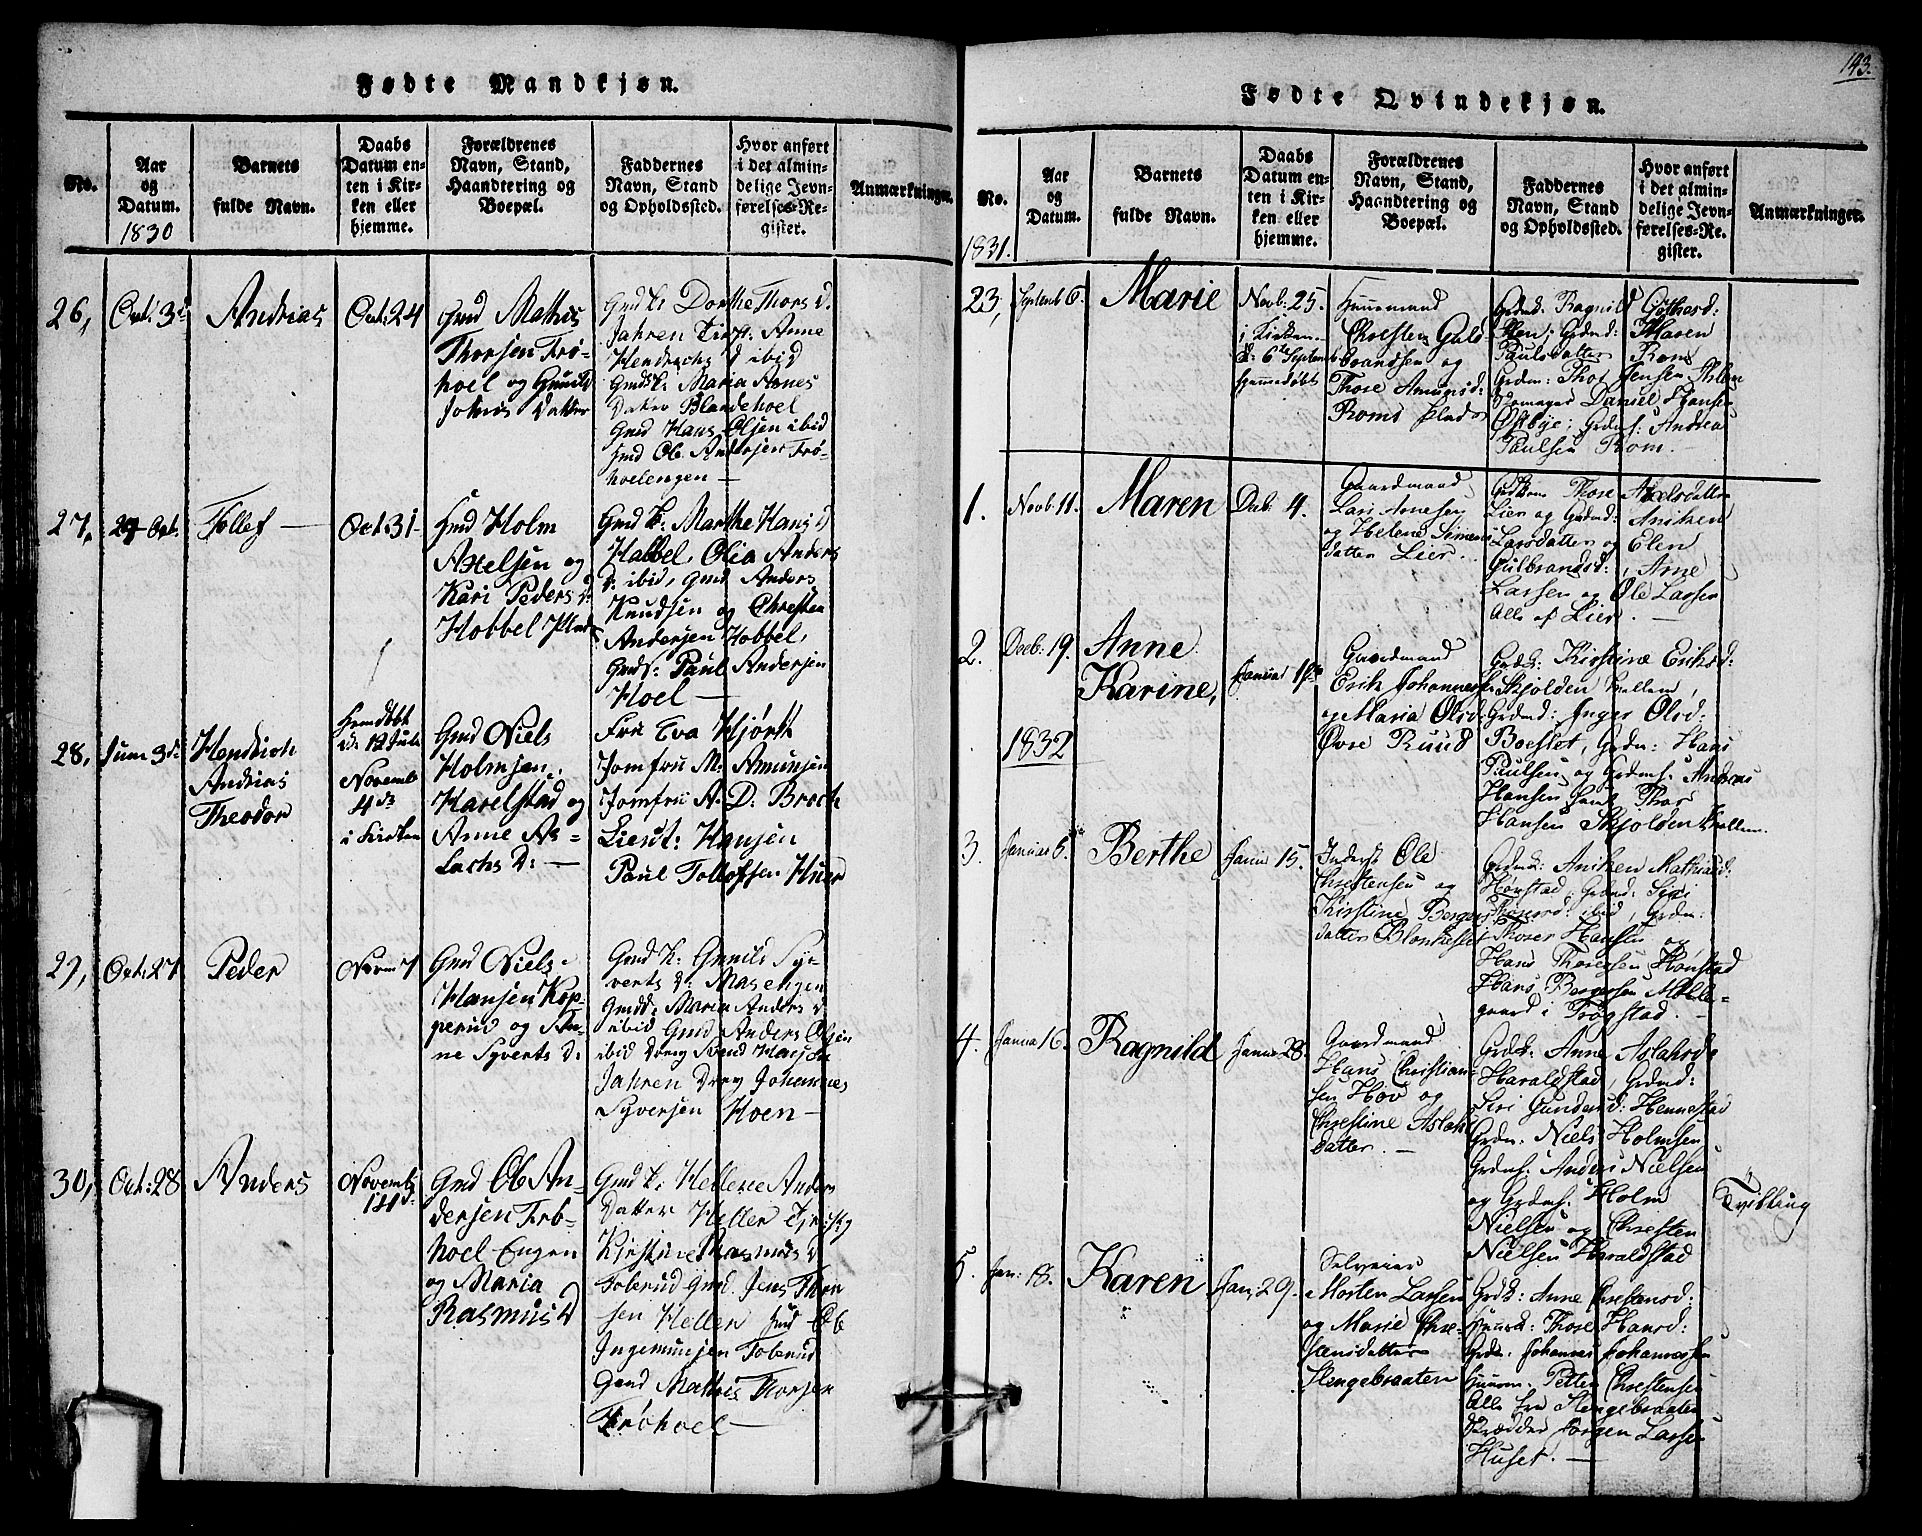 Fødte Mandkjøn.
No.
Aar
og
Datum.
1830
Barnets
fulde Navn.
Daabs
Datum en-
ten i Kir-
ken eller
hjemme.
Forældrenes
Navn, Stand,
Haandtering og
Boepæl.
Faddernes
Navn, Stand
og Opholdssted.
Hvor anført
i det almin-
delige Jevn-
førelses-Re-
gister.
Anmærkninger.
26,
Oct: 3d
Andrias
Oct: 24
Gmd Mathis
Thorsen Frø-
hoel og Gunild
Johns Datter
Gmd k: Dorthe Thors d.
Jahren Anne
Hendrichs d ibid
Gmds k: Maria Arnes
Datter Blandehoel
Gmd Hans Olsen ibid
Hmd Ole Andersen Frø-
hoelengen —
27,
27 Oct.
Tollef —
Oct: 31
Hmd Holm
Axelsen og
Kari Peders d:
Hobbel
Gmd k: Marthe Hans d
Habbel, Olia Anders
d: ibid, Gmd Anders
Knudsen og Christen
Andersen Hobbel,
Gmds: Paul Andersen
Hoel —
28,
Juni 3d:
Hendrich
Andrias
Theodor
d: 12 Juli
Novemb
4 de
i Kirken
Gmd Niels
Holmsen,
Harelstad og
Anne As-
lachs D: —
Fru Eva Hjorth
Jomfru M. Amunsen
Jomfru A. D: Broch
Lieut: Hansen
Paul Tollofsen Huer
29,
Oct: 27
Peder
Novm 7
Gmd Niels
Hansen Kop-
perud og An-
ne Syverts D:
Gmd k. Gunild Sy-
verts d: Masengen
Gmdd: Maria Anders d
ibid Gmd Anders Olsen
ibid Dreng Svend Hansen
Jahren Dreng Johannes
Syversen Hoen —
30,
Oct: 28
Anders
Novemb
14 d:
Gmd Ole An-
dersen Frø-
hoel Engen
og Maria
Rasmus D
Gmd k: Hellene Anders
Datter Heller
Kirstine Rasmus d
Foberud Gmd. Jens Thor
sen Heller Hmd Ole
Ingemunsen Foberud
Gmd Mathis Thorsen
Frøhoel —
143.
Fødte Qvindekjøn.
No.
1831.
Aar
og
Datum.
Barnets
fulde Navn.
Daabs
Datum en-
ten i Kir-
ken eller
hjemme.
Forældrenes
Navn, Stand,
Haandtering og
Boepæl.
Faddernes
Navn, Stand
og Opholdssted.
Hvor anført
i det almin-
delige Jevn-
førelses-Re-
gister.
Anmærkninger.
23,
Septemb 6.
Marie
Novb: 25.
i Kirken
d: 6te Septemb
hjemmedøbt
Huusmand
Christen Guld
brandsen og
Thore Amunsd:
Roms Plads
Grdmk: Ragnild Gothard:
Hen; Grdmd: Maren
Paulsdatter Rom
Grdm: Thor Jensen
Daniel Hansen
Østbye; Grdms: Andreas
Paulsen Rom. —
1.
Novb: 11.
Maren
Decb: 4.
Gaardmand
Lars Arnesen
og Helene Simens
datter Lier. —
Grdkone Thore Axelsdatter
Lier og Grdmd: Aniken
Larsdatter og Elen
Gulbrandsd:, Arne
Larsen og Ole Larsen
Alle af Lier. —
2.
Decb: 19.
Anne
Karine,
Januar
Gaardmand
Erik Johannes
og Maria Olsd:
Øvre Ruud
Grdk: Kirstine Eriksd:
Skjolden Hallem,
Grdmd: Inger Olsd:
Boeslet, Grdm: Hans
Paulsen og Grdms: Andreas
Hansen samt Thor
Hansen Skjolden Hallem.
1832
3.
Januar 6.
Berthe
Januar 15.
Inderst Ole
Christensen og
Kirstine Bergers
datter
Grdmk: Aniken Mathiasd:
Hønstad, Grdmd: Siri
ibid, Grdm:
Thorer Hansen og
Hans Thoresen Hønstad
Hans Bergersen Mølle-
gaard i Trøgstad. —
4.
Janua 16.
Ragnild
Januar 28.
Gaardmand
Hans Christian-
sen Hov og
Chrestine Aslaks
datter. —
Grdk: Anne Aslaksd:
Haraldstad, Grdmd:
Siri Gundersd: Hennestad
Grdm: Niels Holmsen
Grdms: Anders Nielsen
og Grdms: Holm
Nielsen og Chresten
Nielsen Haraldstad
Tvilling
5.
Jan: 18.
Karen
Jan; 29.
Selveier
Morten Larsen
og Marie Chre-
stensdatter
Hengebraaten
Grdk: Anne Chrestensd:
Huusk: Thore Hansd:
Grdm: Johannes Johannessen
Huusm. Petter Chrestensen
Alle fra Hengebraaten
Skrædder Jørgen Larsen
Huset. —